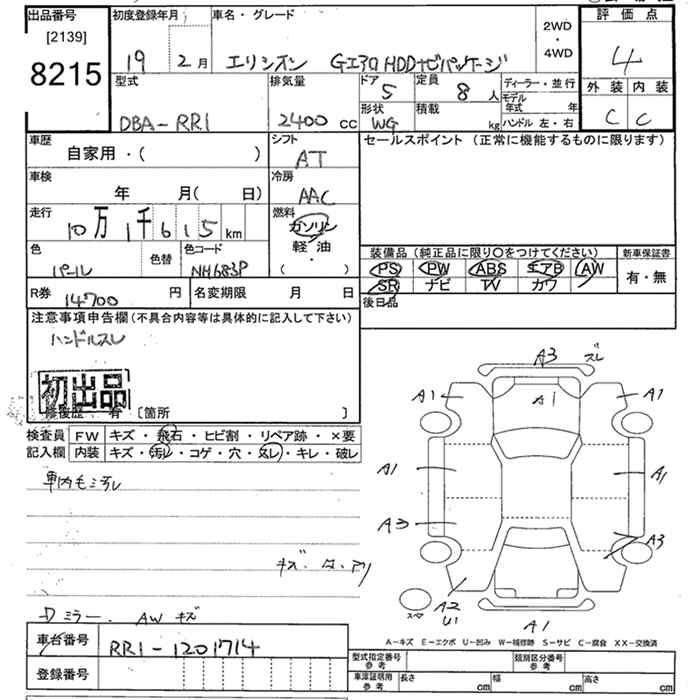 出品番号
[2139]
8215
初度登録年月
19 2月
車名・グレード
エリシオン GエアロHDDナビパッケージ
2WD
・
4WD
評価点
4
外装 内装
C C
型式
DBA-RR1
排気量
2400 CC
ドア
5
定員
8人
ディーラー・並行
モデル年式 年
ハンドル 左・右
形状
WG
積載
kg
車歴
自家用・( )
シフト
AT
セールスポイント (正常に機能するものに限ります)
車検
年 月( 日)
冷房
AAC
走行
10万1千615km
燃料
ガソリン
軽・油
・
( )
色
パール
色替
色コード
NH683P
装備品(純正品に限り〇をつけてください)
新車保証書
PS PW ABS エアB AW
SR ナビ TV カワ
有・無
R券
14700 円
名変期限 月 日
後日品
注意事項申告欄(不具合内容等は具体的に記入して下さい)
ハンドルスレ
初出品
修復歴・有 [箇所 ]
検査員
記入欄
FW キズ・飛石・ヒビ割・リペア跡・×要
内装 キズ・汚レ・コゲ・穴・スレ・キレ・破レ
A3 ズレ
A1 A1 A1
A1 A1
A3 A3
A2
U1
A1
スペア
キズ・
Dミラー. AWキズ
A-キズ E-エクボ U-凹み W-補修跡 S-サビ C-腐食 XX-交換済
車台番号
RR1-1201714
登録番号
型式指定番号
参考
類別区分番号
参考
車庫証明用
参考
長さ cm 幅 cm 高さ cm